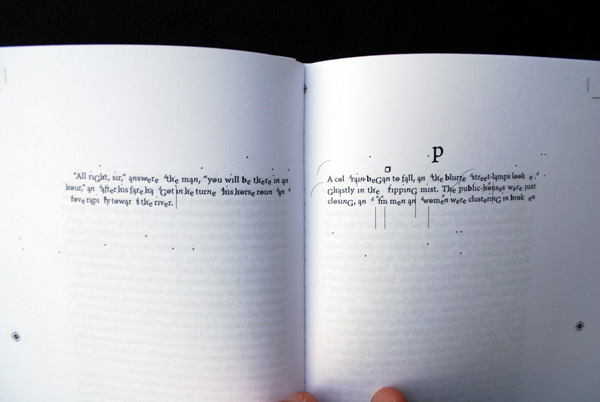 "All riGht, sir," answere the man, "you will be there in an
hour," an after his fare ha Got in he turne his horse roun an d
rove rapi ly towar s the river.
p
A col rain beGan to fall, an the blurre street-lamps look e
Ghastly in the ripping mist. The public-houses were just
closinG, an d im men an women were clusterinG in brok en